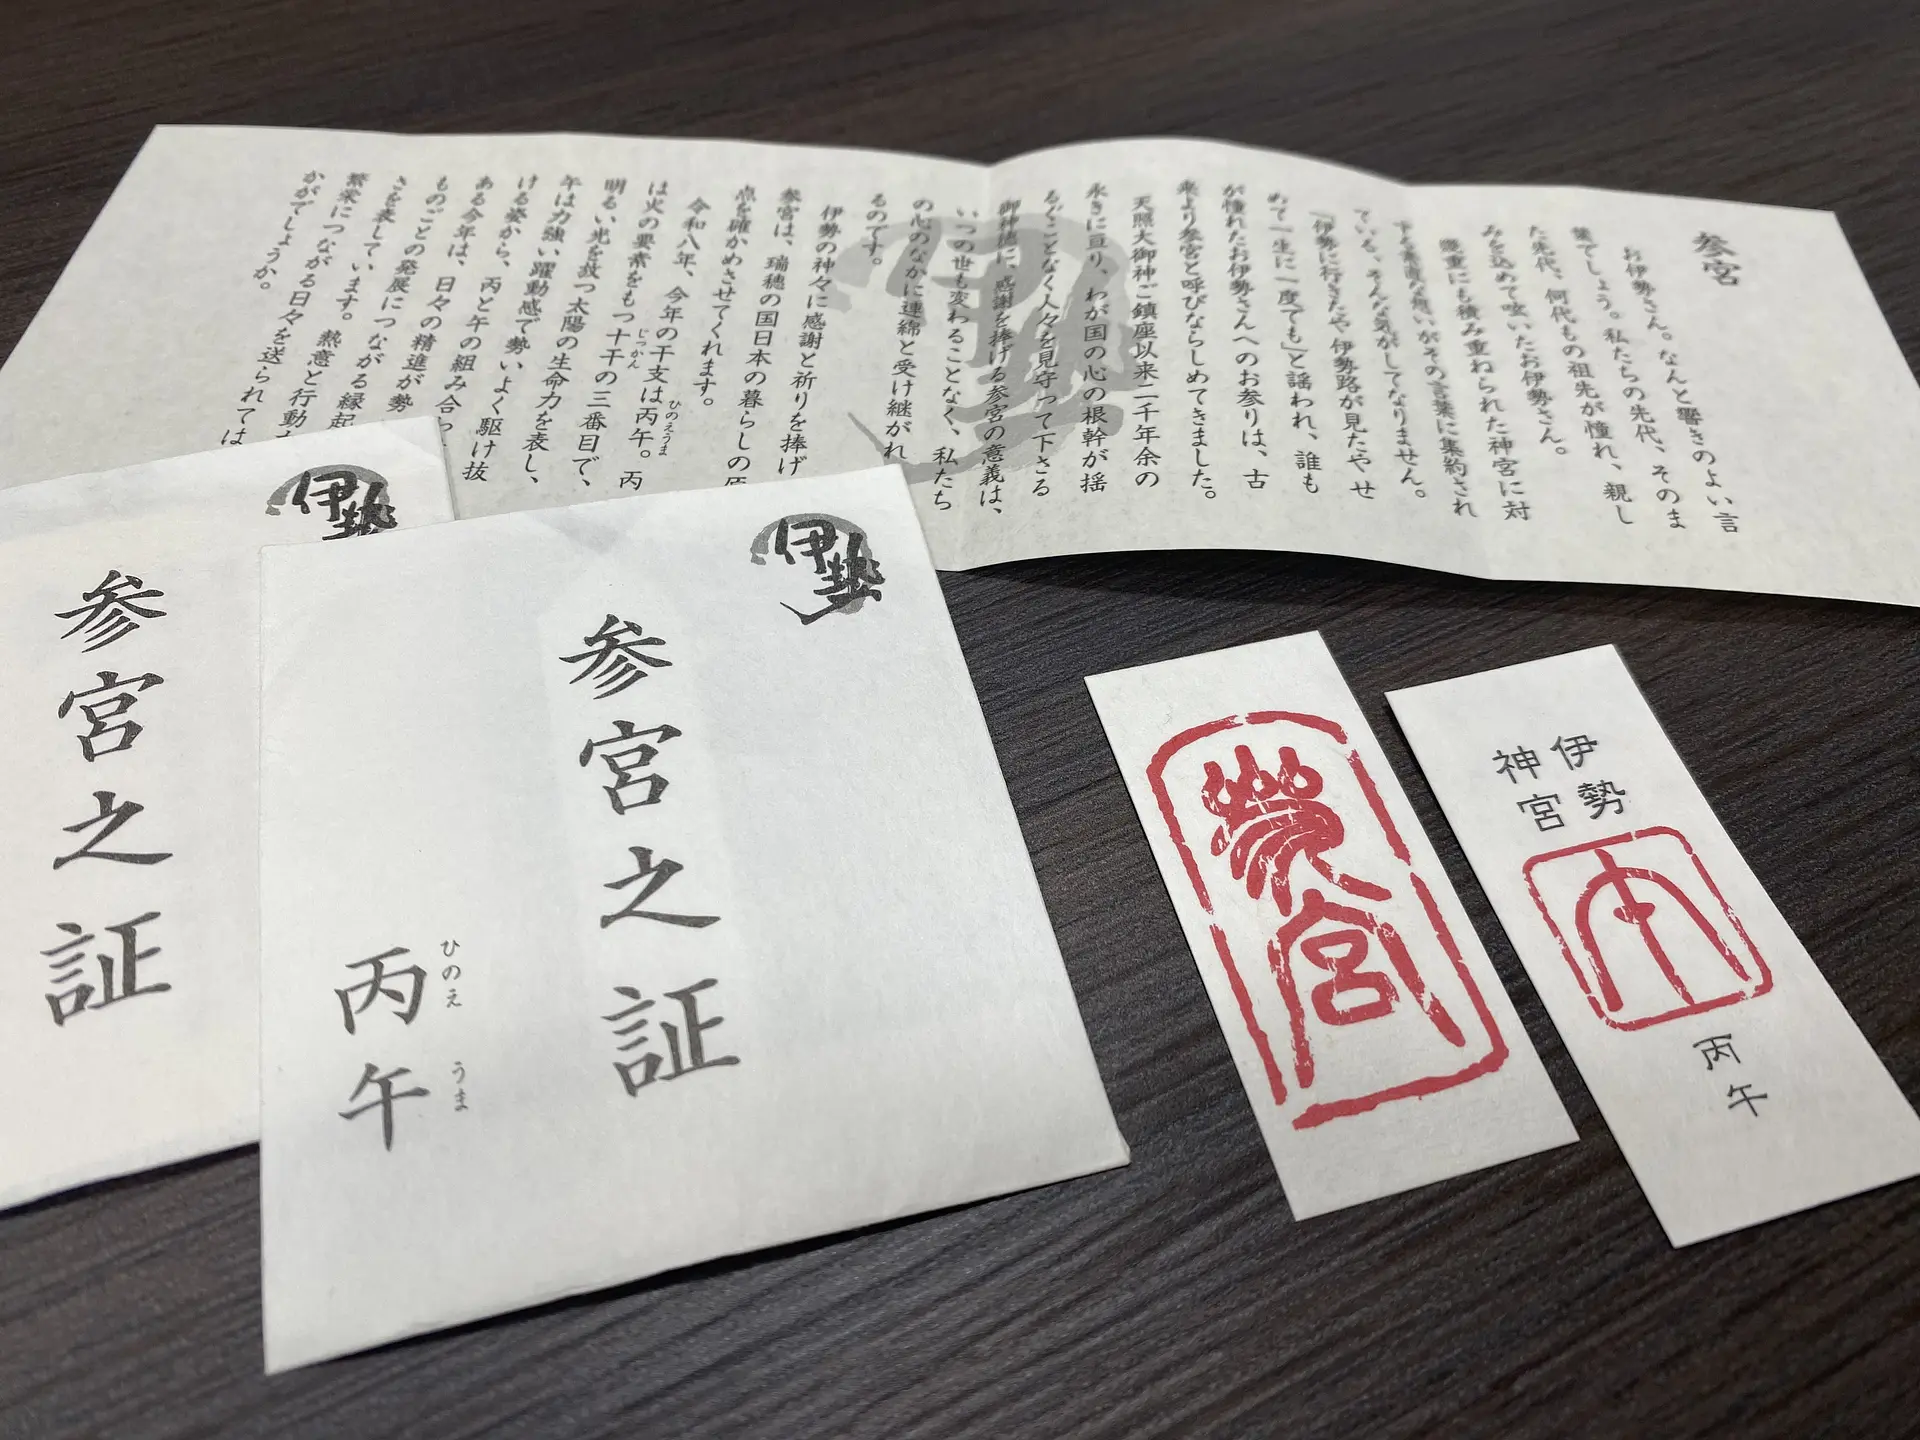 参宮
お伊勢さん。なんと響きのよい言
葉でしょう。私たちの先代、そのま
た先代、何代もの祖先が憧れ、親し
みを込めて呟いたお伊勢さん。
幾重にも積み重ねられた神宮に対
する素直な想いがその言葉に集約され
ている、そんな気がしてなりません。
「伊勢に行きたや伊勢路が見たや、せ
めて一生に一度でも」と謡われ、誰も
が憧れたお伊勢さんへのお参りは、古
来より参宮と呼びならしめてきました。
天照大御神ご鎮座以来二千年余の
永きに亘り、わが国の心の根幹が揺
るぐことなく人々を見守って下さる
御神徳に、感謝を捧げる参宮の意義は、
いつの世も変わることなく、私たち
の心のなかに連綿と受け継がれ
るものです。
伊勢の神々に感謝と祈りを捧げ
参宮は、瑞穂の国日本の暮らしの原
点を確かめさせてくれます。
令和八年、今年の干支は丙午。丙
ひのえうま
は火の要素をもつ十干の三番目で、
じっかん
明るい光を放つ太陽の生命力を表し、
午は力強い躍動感で勢いよく駆け抜
ける姿から、丙と午の組み合わ
ある今年は、日々の精進が勢
ものごとの発展につながる縁起
さを表しています。熱意と行動
繁栄につながる日々を送られては
かがでしょうか。
伊勢
伊勢
参宮之証
伊勢
参宮之証
丙午
ひのえ うま
参宮
伊勢
神宮
丙午